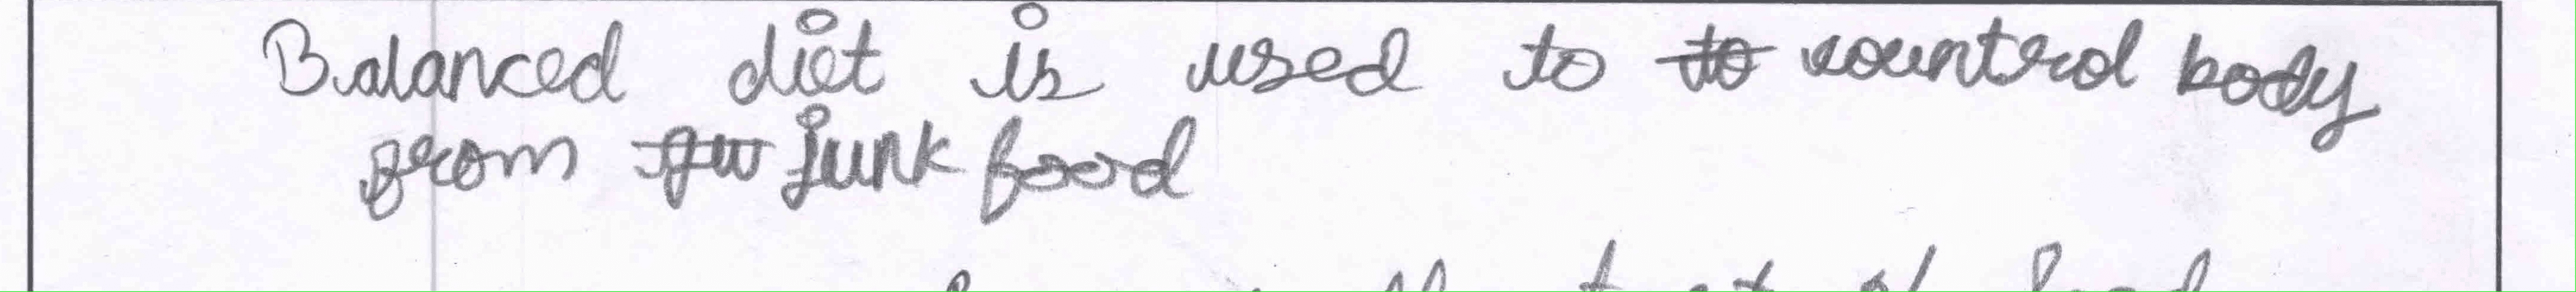 Balanced diet is used to to countrol body
from ju junk food